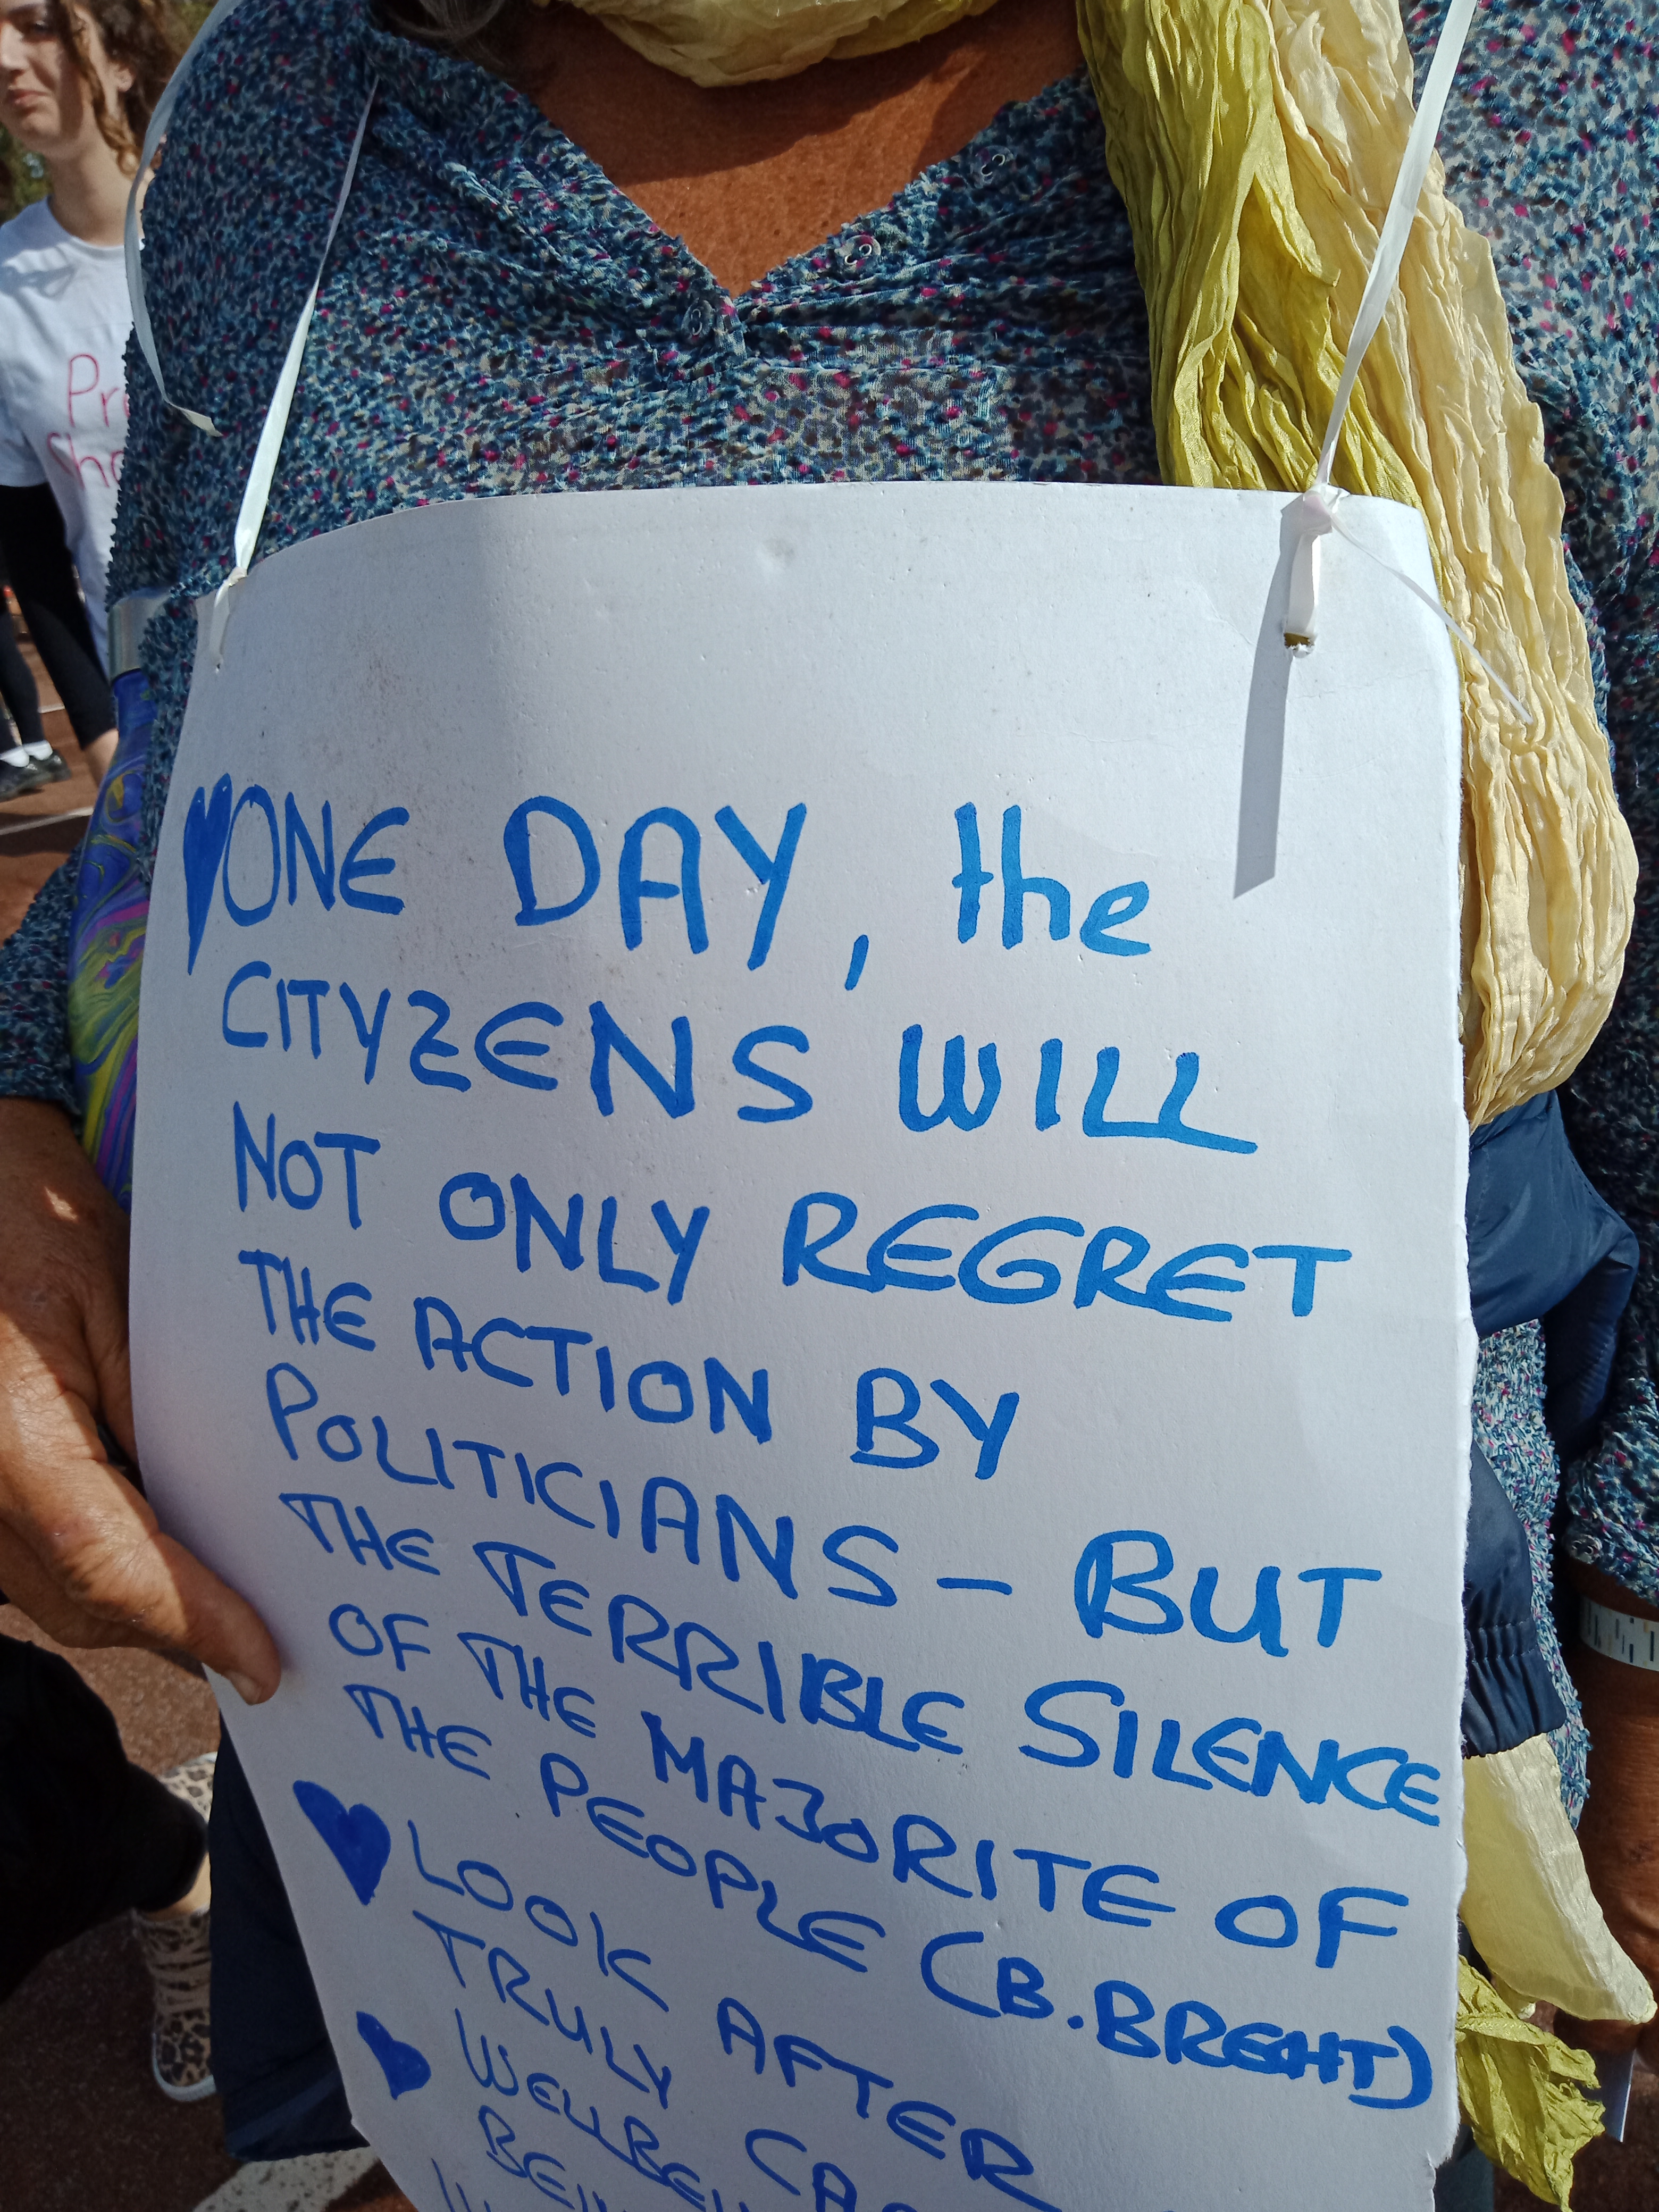 Pr
Sho
ONE DAY, the
CITYZENS WILL
NOT ONLY REGRET
THE ACTION BY
POLITICIANS - BUT
THE TERRIBLE SILENCE
OF THE MAJORITE OF
THE PEOPLE (B.BREHT)
LOOK AFTER
TRULY